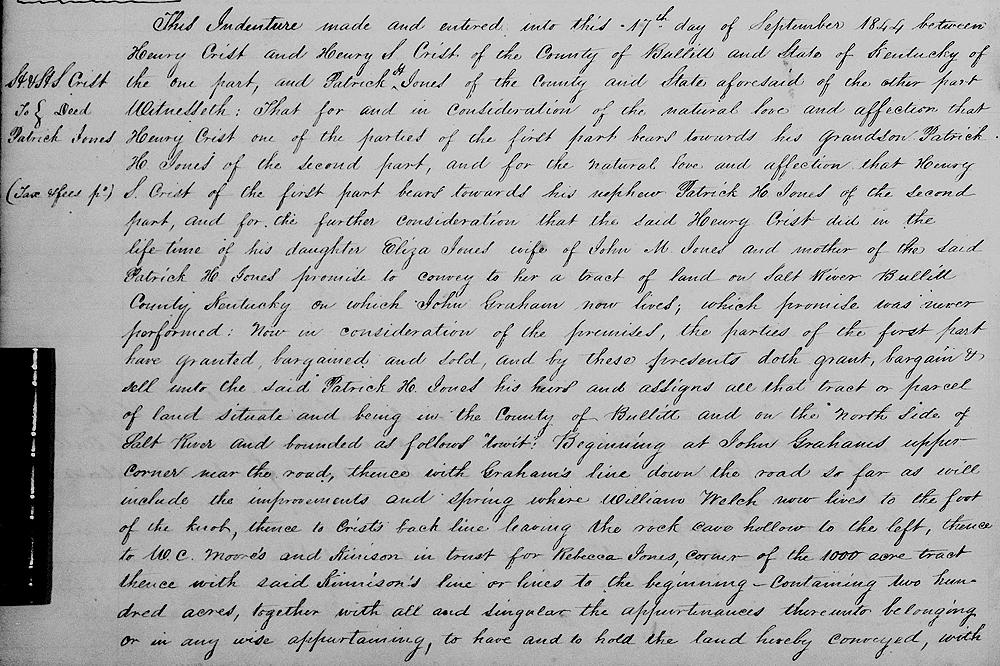 This Indenture made and entered into this 17th day of September 1844 between
Henry Crist and Henry S Crist of the County of Bullitt and State of Kentucky of
the one part, and Patrick H Jones of the County and State aforesaid of the other part
Witnesseth: That for and in consideration of the natural love and affection that
Henry Crist one of the parties of the first part bears towards his grandson Patrick
H Jones of the second part, and for the natural love and affection that Henry
S. Crist of the first part bears towards his nephew Patrick H. Jones of the second
part, and for the further consideration that the said Henry Crist did in the
life time of his daughter Eliza Jones wife of John M Jones and mother of the said
Patrick H. Jones promise to convey to her a tract of land on Salt River Bullitt
County Kentucky on which John Graham now lives; which promise was never
performed: Now in consideration of the premises, the parties of the first part
have granted, bargained and sold, and by these presents doth grant, bargain &
sell unto the said Patrick H. Jones his heirs and assigns all that tract or parcel
of land situate and being in the County of Bullitt and on the North side of
Salt River and bounded as follows towit: Beginning at John Grahams upper
corner near the road, thence with Graham's line down the road so far as will
include the improvements and spring where William Welch now lives to the foot
of the knob, thence to Crists back line leaving the rock cave hollow to the left, thence
to W.C. Moore's and Kinison in trust for Rebecca Jones, corner of the 1000 acre tract
thence with said Kinnison's line or lines to the beginning - Containing two hun-
dred acres, together with all and singular the appurtinances thereunto belonging
or in any wise appurtaining, to have and to hold the land hereby conveyed, with
H & H S Crist
To { Deed
Patrick Jones
(Tax & fees pd)